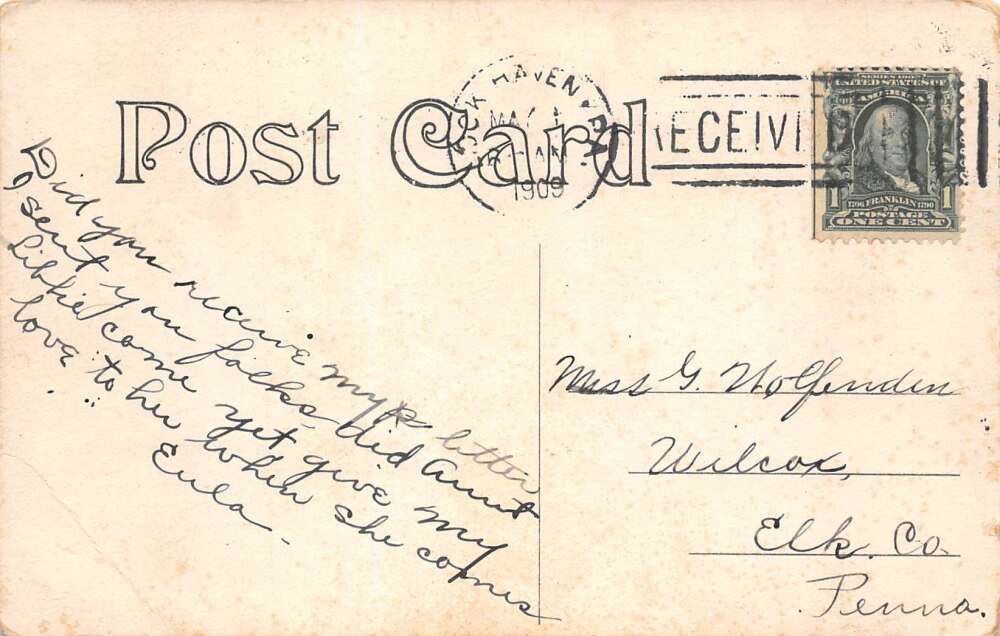 Post Card
LOCK HAVEN, PA.
MAY
1909
RECEIVED
SERIES 1902
UNITED STATES OF
AMERICA
1706 FRANKLIN 1790
1 POSTAGE 1
ONE CENT
Did you receive my letter
I sent you folks, did Aunt
Libbie come yet give my
love to her when she comes
Eula
Miss G. Wolfenden
Wilcox,
Elk. Co.
Penna.